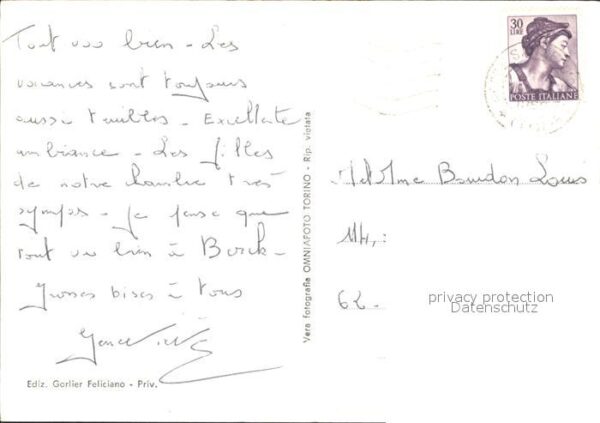 Tout va bien - Les
vacances sont toujours
aussi - Excellente
ambiance - Les filles
de notre chambre très
sympas - Je pense que
tout va bien à Berck -
Grosses bises à tous
30
LIRE
POSTE ITALIANE
M et Mme Bourdon Louis
114,
62 -
privacy protection
Datenschutz
Vera fotografia OMNIAFOTO TORINO - Rip. vietata
Ediz. Gorlier Feliciano - Priv.